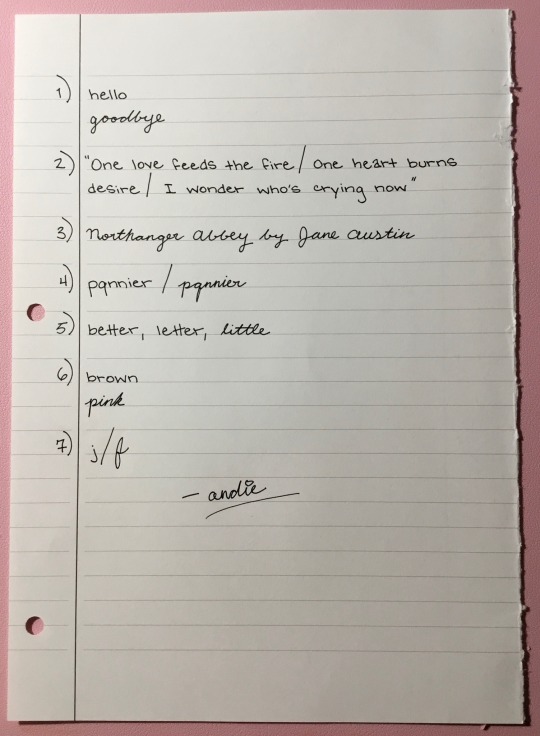 1) hello
goodbye
2) "One love feeds the fire / One heart burns
desire / I wonder who's crying now"
3) Northanger abbey by Jane austin
4) pqnnier / pqnnier
5) better, letter, little
6) brown
pink
7) j/f
- andie